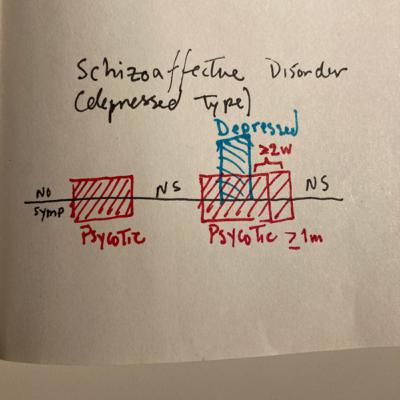 Schizoaffective Disorder
(depressed Type)
Depressed
≥2w
NO
symp
NS
NS
Psycotic
Psycotic ≥1m